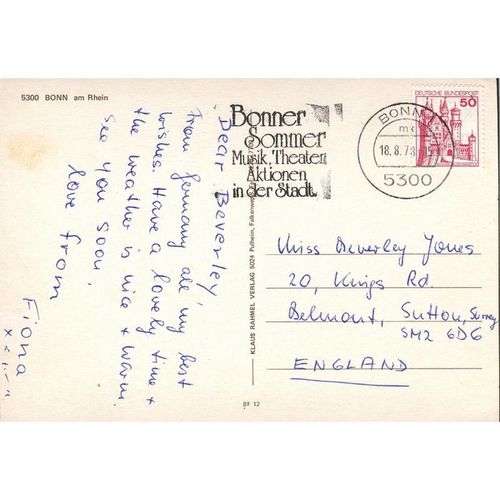 5300 BONN am Rhein
Dear Beverley,
From Germany all my best
wishes. Have a lovely time +
the weather is nice + warm.
See you soon,
love from
Fiona
Bonner
Sommer
Musik, Theater,
Aktionen
in der Stadt.
BONN
18.8.78
5300
DEUTSCHE BUNDESPOST
50
KLAUS RAHMEL VERLAG 5024 Pulheim,
Miss Beverley Jones
20, Kings Rd.
Belmont, Sutton, Surrey,
SM2 6DG
ENGLAND
BF 12